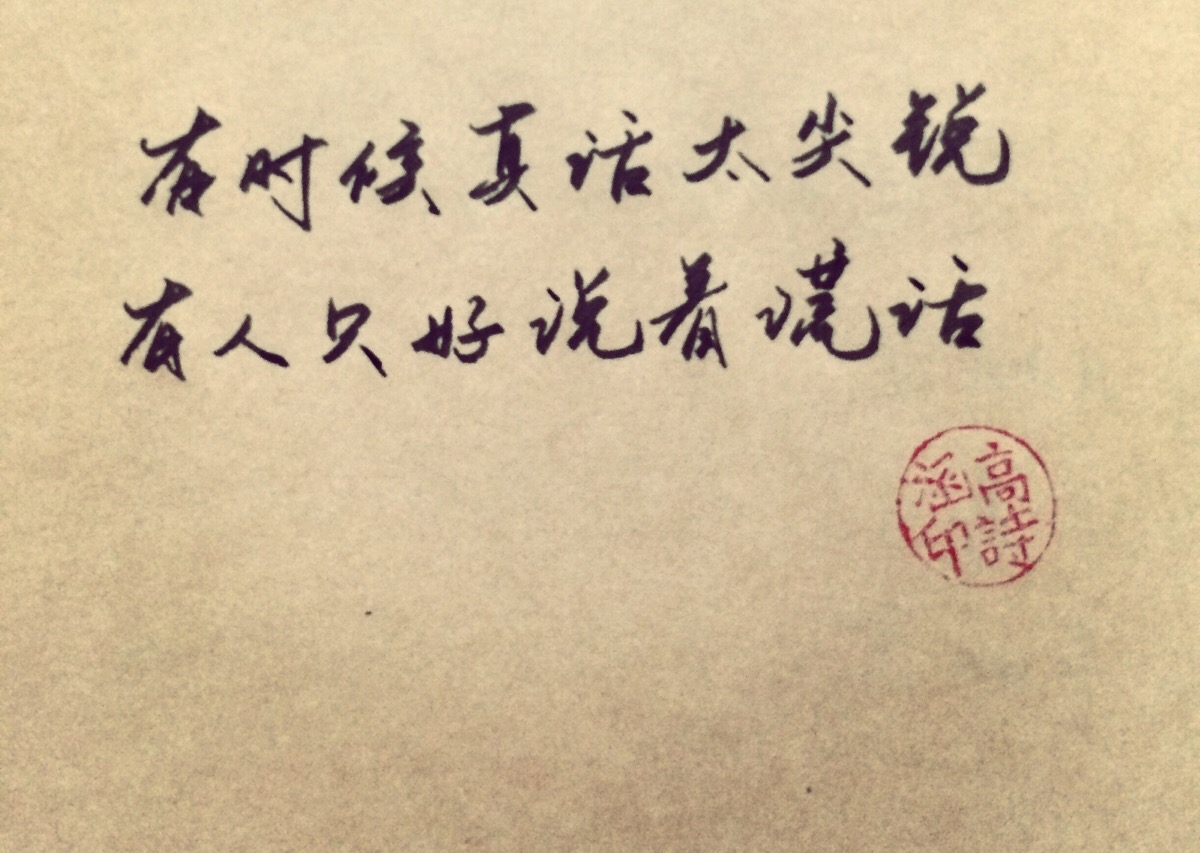 有时候真话太尖锐
有人只好说着谎话
高詩
涵印